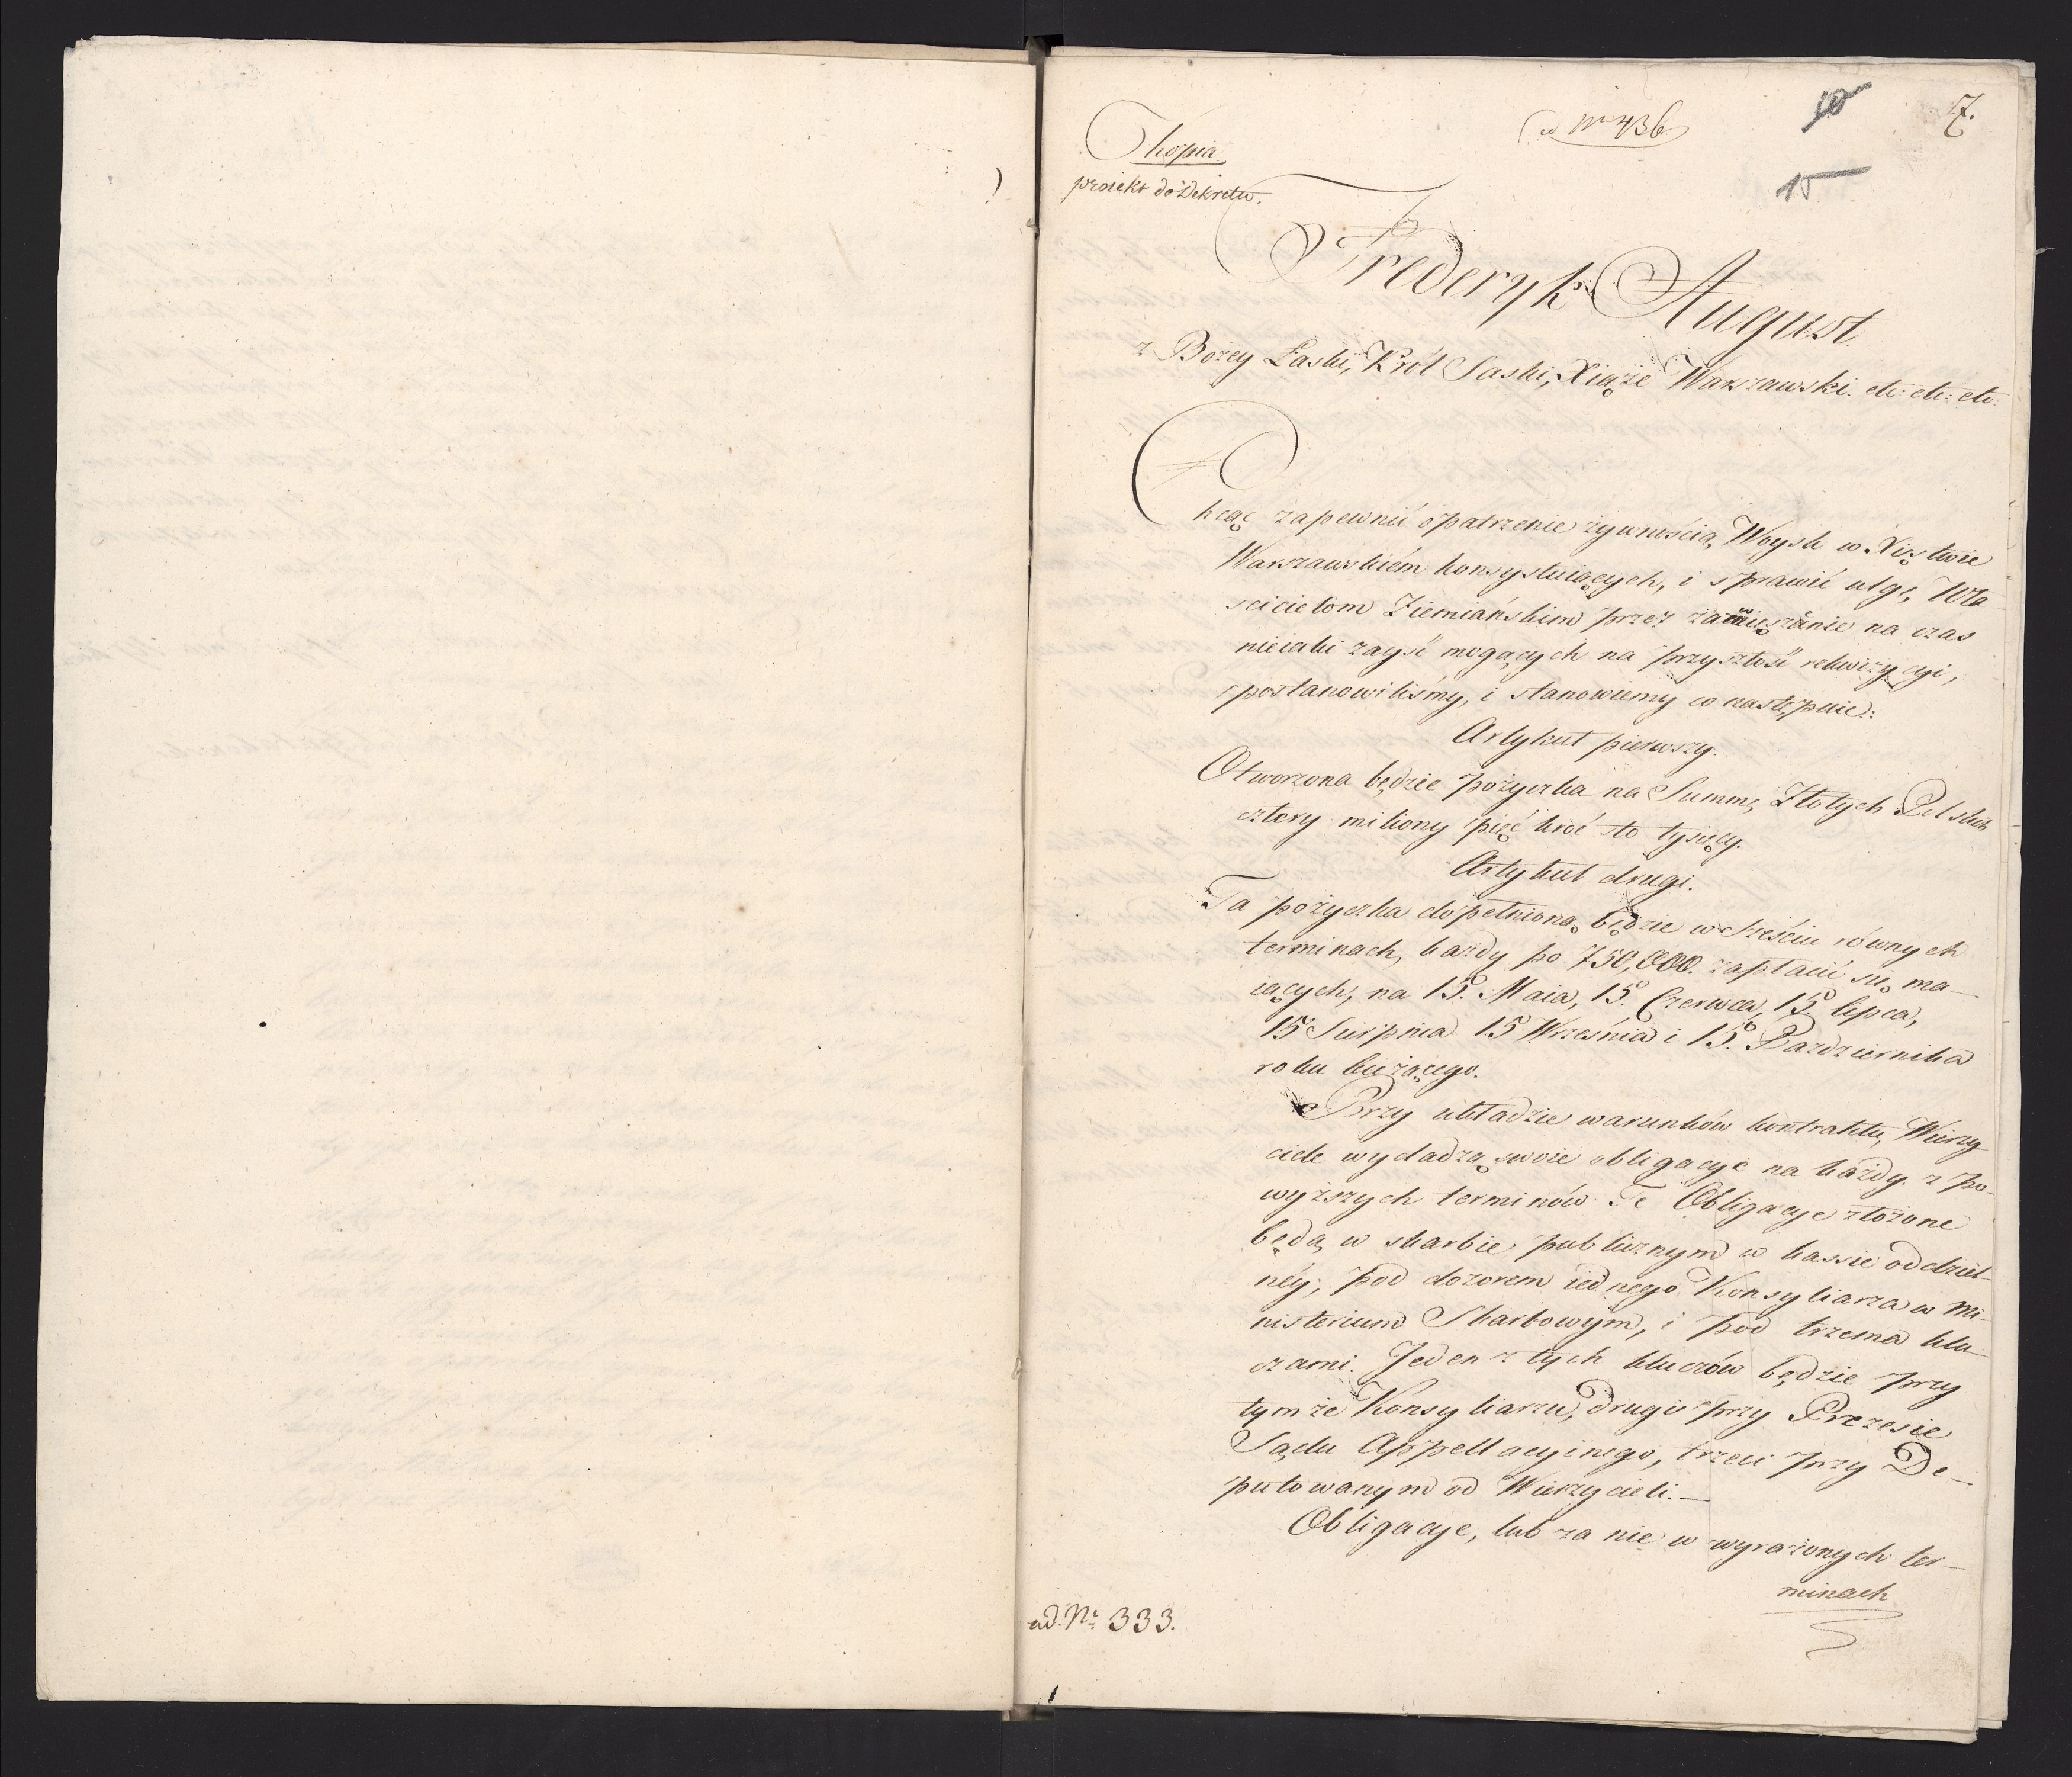 Kopia
proiekt do Dekretu.
w Nr 436
10
7.
15
Fryderyk August
z Bożey Łaski, Król Saski, Xiąże Warszawski etc: etc: etc:
Chcąc zapewnić opatrzenie żywnością Woysk w Xięstwie
Warszawskiém konsystuiących, i sprawić ulgę Wła
scicielom Ziemiańskim przez na czas
nieiaki zayść mogących na przyszłość rekwizycyi,
postanowiliśmy, i stanowiemy co następuie:
Artykuł pierwszy.
Otworzona będzie pożyczka na Summę Złotych Polskich
cztery miliony pięć kroć sto tysięcy.
Artykuł drugi.
Ta pożyczka dopełnioną będzie w sześciu równych
terminach, każdy po 750,000. zapłacić się ma-
iących, na 15o. Maia, 15o. Czerwca, 15o. lipca,
15 Sierpnia 15 Września i 15o. Pazdziernika
roku bieżącego.
Przy układzie warunków kontraktu, Wierzy
ciele wydadzą swoie obligacye na każdy z po-
wyższych terminów Te Obligacye złożone
będą w skarbie publicznym w kassie oddziel-
néy, pod dozorem iednego Konsyliarza w Mi-
nisterium Skarbowym, i pod trzema klu-
czami. Jeden z tych kluczów będzie przy
tymże Konsyliarzu, drugi przy Prezesie
Sądu Appellacyinego, trzeci przy De-
putowanym od Wierzycieli.-
Obligacye, lub za nie w wyrażonych ter-
minach
ad. Nr 333.